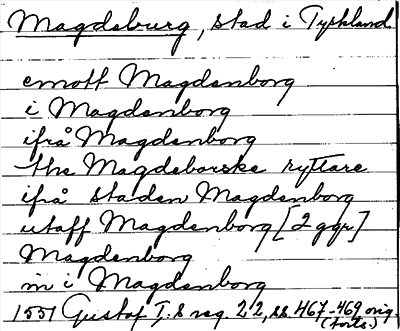 Magdeburg, stad i Tyskland
emott Magdenborg
i Magdenborg
ifrå Magdenborg
the Magdeborske ryttare
ifrå staden Magdenborg
utaff Magdenborg [2 ggr]
Magdenborg
in i Magdenborg
1551 Gustaf I:s reg. 22, ss. 467-469 orig.
(forts.)